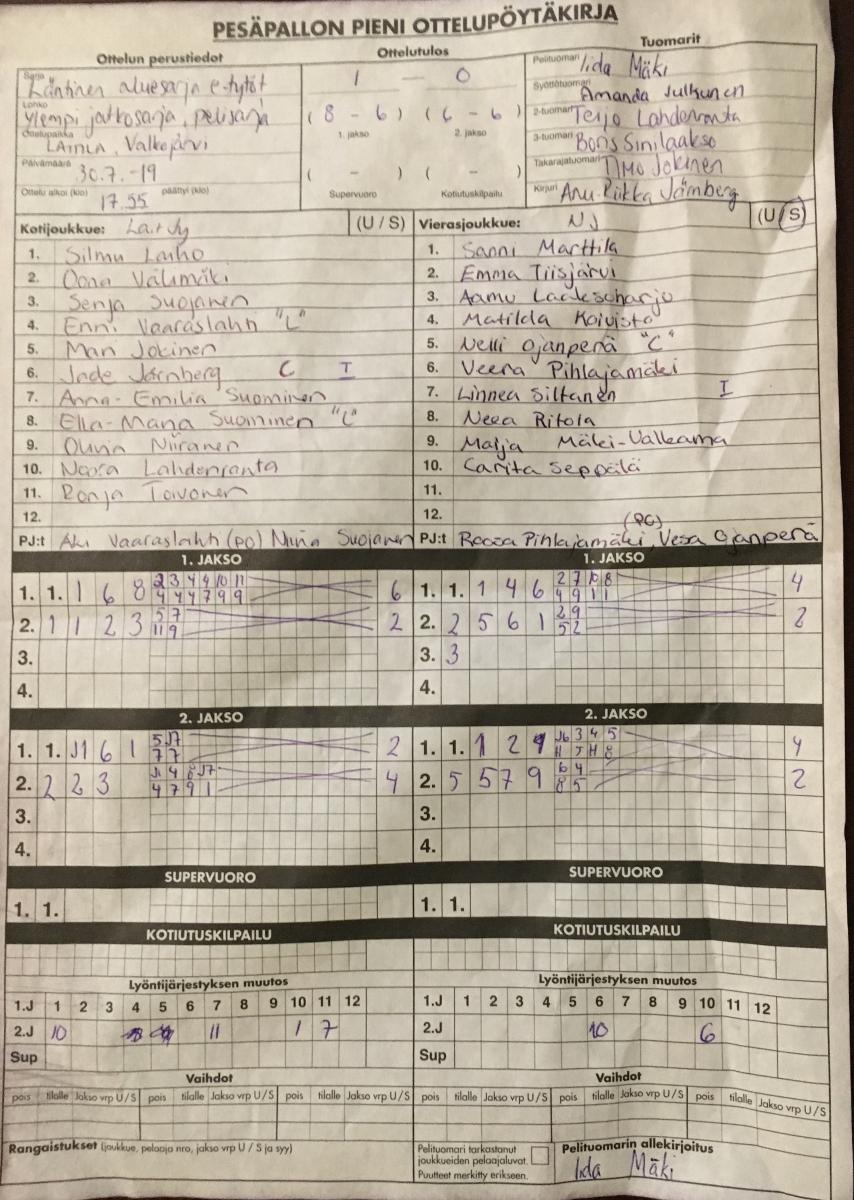 PESÄPALLON PIENI OTTELUPÖYTÄKIRJA
Ottelun perustiedot
Ottelutulos
Tuomarit
Sarja Läntinen aluesarja e-tytöt
Lohko Ylempi jatkosarja, pelisarja
Ottelupaikka LAITILA, Valkojärvi
Päivämäärä 30.7.-19
Ottelu alkoi (klo) 17.55 päättyi (klo)
1 — 0
( 8 - 6 ) ( 6 - 6 )
1. jakso 2. jakso
( - ) ( - )
Supervuoro Kotiutuskilpailu
Pelituomari Iida Mäki
Syöttötuomari Amanda Julkunen
2-tuomari Teijo Lahdenranta
3-tuomari Boris Sinilaakso
Takarajatuomari TIMO Jokinen
Kirjuri Anu-Riikka Järnberg
Kotijoukkue: LaitJy (U / S)
1. Silmu Laiho
2. Oona Välimäki
3. Senja Suojanen
4. Enni Vaaraslahti "L"
5. Mari Jokinen
6. Jade Järnberg C I
7. Anna-Emilia Suominen
8. Ella-Maria Suominen "L"
9. Olivia Niiranen
10. Noora Lahdenranta
11. Ronja Toivonen
12.
PJ:t Aki Vaaraslahti (PO) Miña Suojanen
Vierasjoukkue: NJ (U / S)
1. Sanni Marttila
2. Emma Tiisjärvi
3. Aamu Laaksoharju
4. Matilda Koivisto
5. Nelli Ojanperä "C"
6. Veera Pihlajamäki
7. Linnea Siltanen I
8. Neea Ritola
9. Maija Mäki-Valkama
10. Carita Seppälä
11.
12.
(PO)
PJ:t Roosa Pihlajamäki, Vesa Ojanperä
1. JAKSO
1. 1. 1 6 8 2 3 4 9 10 11 6
4 4 4 7 9 9
2. 1 1 2 3 5 7 2
11 9
3.
4.
1. JAKSO
1. 1. 1 4 6 2 7 10 8 4
4 9 1 1
2. 2 5 6 1 2 9 2
5 2
3. 3
4.
2. JAKSO
1. 1. J1 6 1 5 J7 2
7 7
2. 2 2 3 J1 4 6 J7 4
4 7 9 1
3.
4.
2. JAKSO
1. 1. 1 2 9 J6 3 4 5 4
2. 5 5 7 9 6 4 2
8 5
3.
4.
SUPERVUORO
1. 1.
SUPERVUORO
1. 1.
KOTIUTUSKILPAILU
KOTIUTUSKILPAILU
Lyöntijärjestyksen muutos
1.J 1 2 3 4 5 6 7 8 9 10 11 12
2.J 10 11 1 7
Sup
Lyöntijärjestyksen muutos
1.J 1 2 3 4 5 6 7 8 9 10 11 12
2.J 10 6
Sup
Vaihdot
pois tilalle Jakso vrp U / S pois tilalle Jakso vrp U / S pois tilalle Jakso vrp U / S
Vaihdot
pois tilalle Jakso vrp U / S pois tilalle Jakso vrp U / S pois tilalle Jakso vrp U / S
Rangaistukset (joukkue, pelaaja nro, jakso vrp U / S ja syy)
Pelituomari tarkastanut
joukkueiden pelaajaluvat.
Puutteet merkitty erikseen.
Pelituomarin allekirjoitus
Iida Mäki